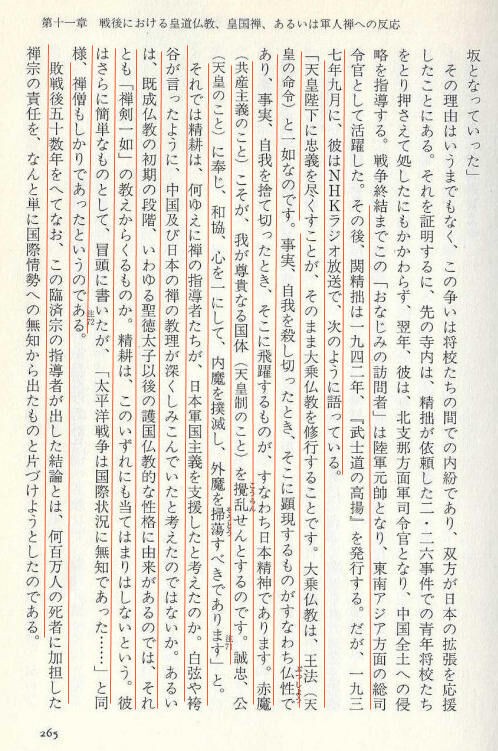 第十一章　戦後における皇道仏教、皇国禅、あるいは軍人禅への反応
坂となっていった」
その理由はいうまでもなく、この争いは将校たちの間での内紛であり、双方が日本の拡張を応援
したことにある。それを証明するに、先の寺内は、精拙が依頼した二・二六事件での青年将校たち
をとり押さえて処したにもかかわらず、翌年、彼は、北支那方面軍司令官となり、中国全土への侵
略を指導する。戦争終結までこの「おなじみの訪問者」は陸軍元帥となり、東南アジア方面の総司
令官として活躍した。その後、関精拙は一九四二年、『武士道の高揚』を発行する。だが、一九三
七年九月に、彼はNHKラジオ放送で、次のように語っている。
「天皇陛下に忠義を尽くすことが、そのまま大乗仏教を修行することです。大乗仏教は、王法（天
皇の命令）と一如なのです。事実、自我を殺し切ったとき、そこに顕現するものがすなわち仏性で
あり、事実、自我を捨て切ったとき、そこに飛躍するものが、すなわち日本精神であります。赤魔
（共産主義のこと）こそが、我が尊貴なる国体（天皇制のこと）を攪乱せんとするのです。誠忠、公
（天皇のこと）に奉じ、和協、心を一にして、内魔を撲滅し、外魔を掃蕩すべきであります」と。注71
それでは精耕は、何ゆえに禅の指導者たちが、日本軍国主義を支援したと考えたのか。白弦や袴
谷が言ったように、中国及び日本の禅の教理が深くしみこんでいたと考えたのではないか。あるい
は、既成仏教の初期の段階、いわゆる聖徳太子以後の護国仏教的な性格に由来があるのでは、それ
とも「禅剣一如」の教えからくるものか。精耕は、このいずれにも当てはまりはしないという。彼
はさらに簡単なものとして、冒頭に書いたが、「太平洋戦争は国際状況に無知であった……」と同
様、禅僧もしかりであったというのである。注72
敗戦後五十数年をへてなお、この臨済宗の指導者が出した結論とは、何百万人の死者に加担した
禅宗の責任を、なんと単に国際情勢への無知から出たものと片づけようとしたのである。
265